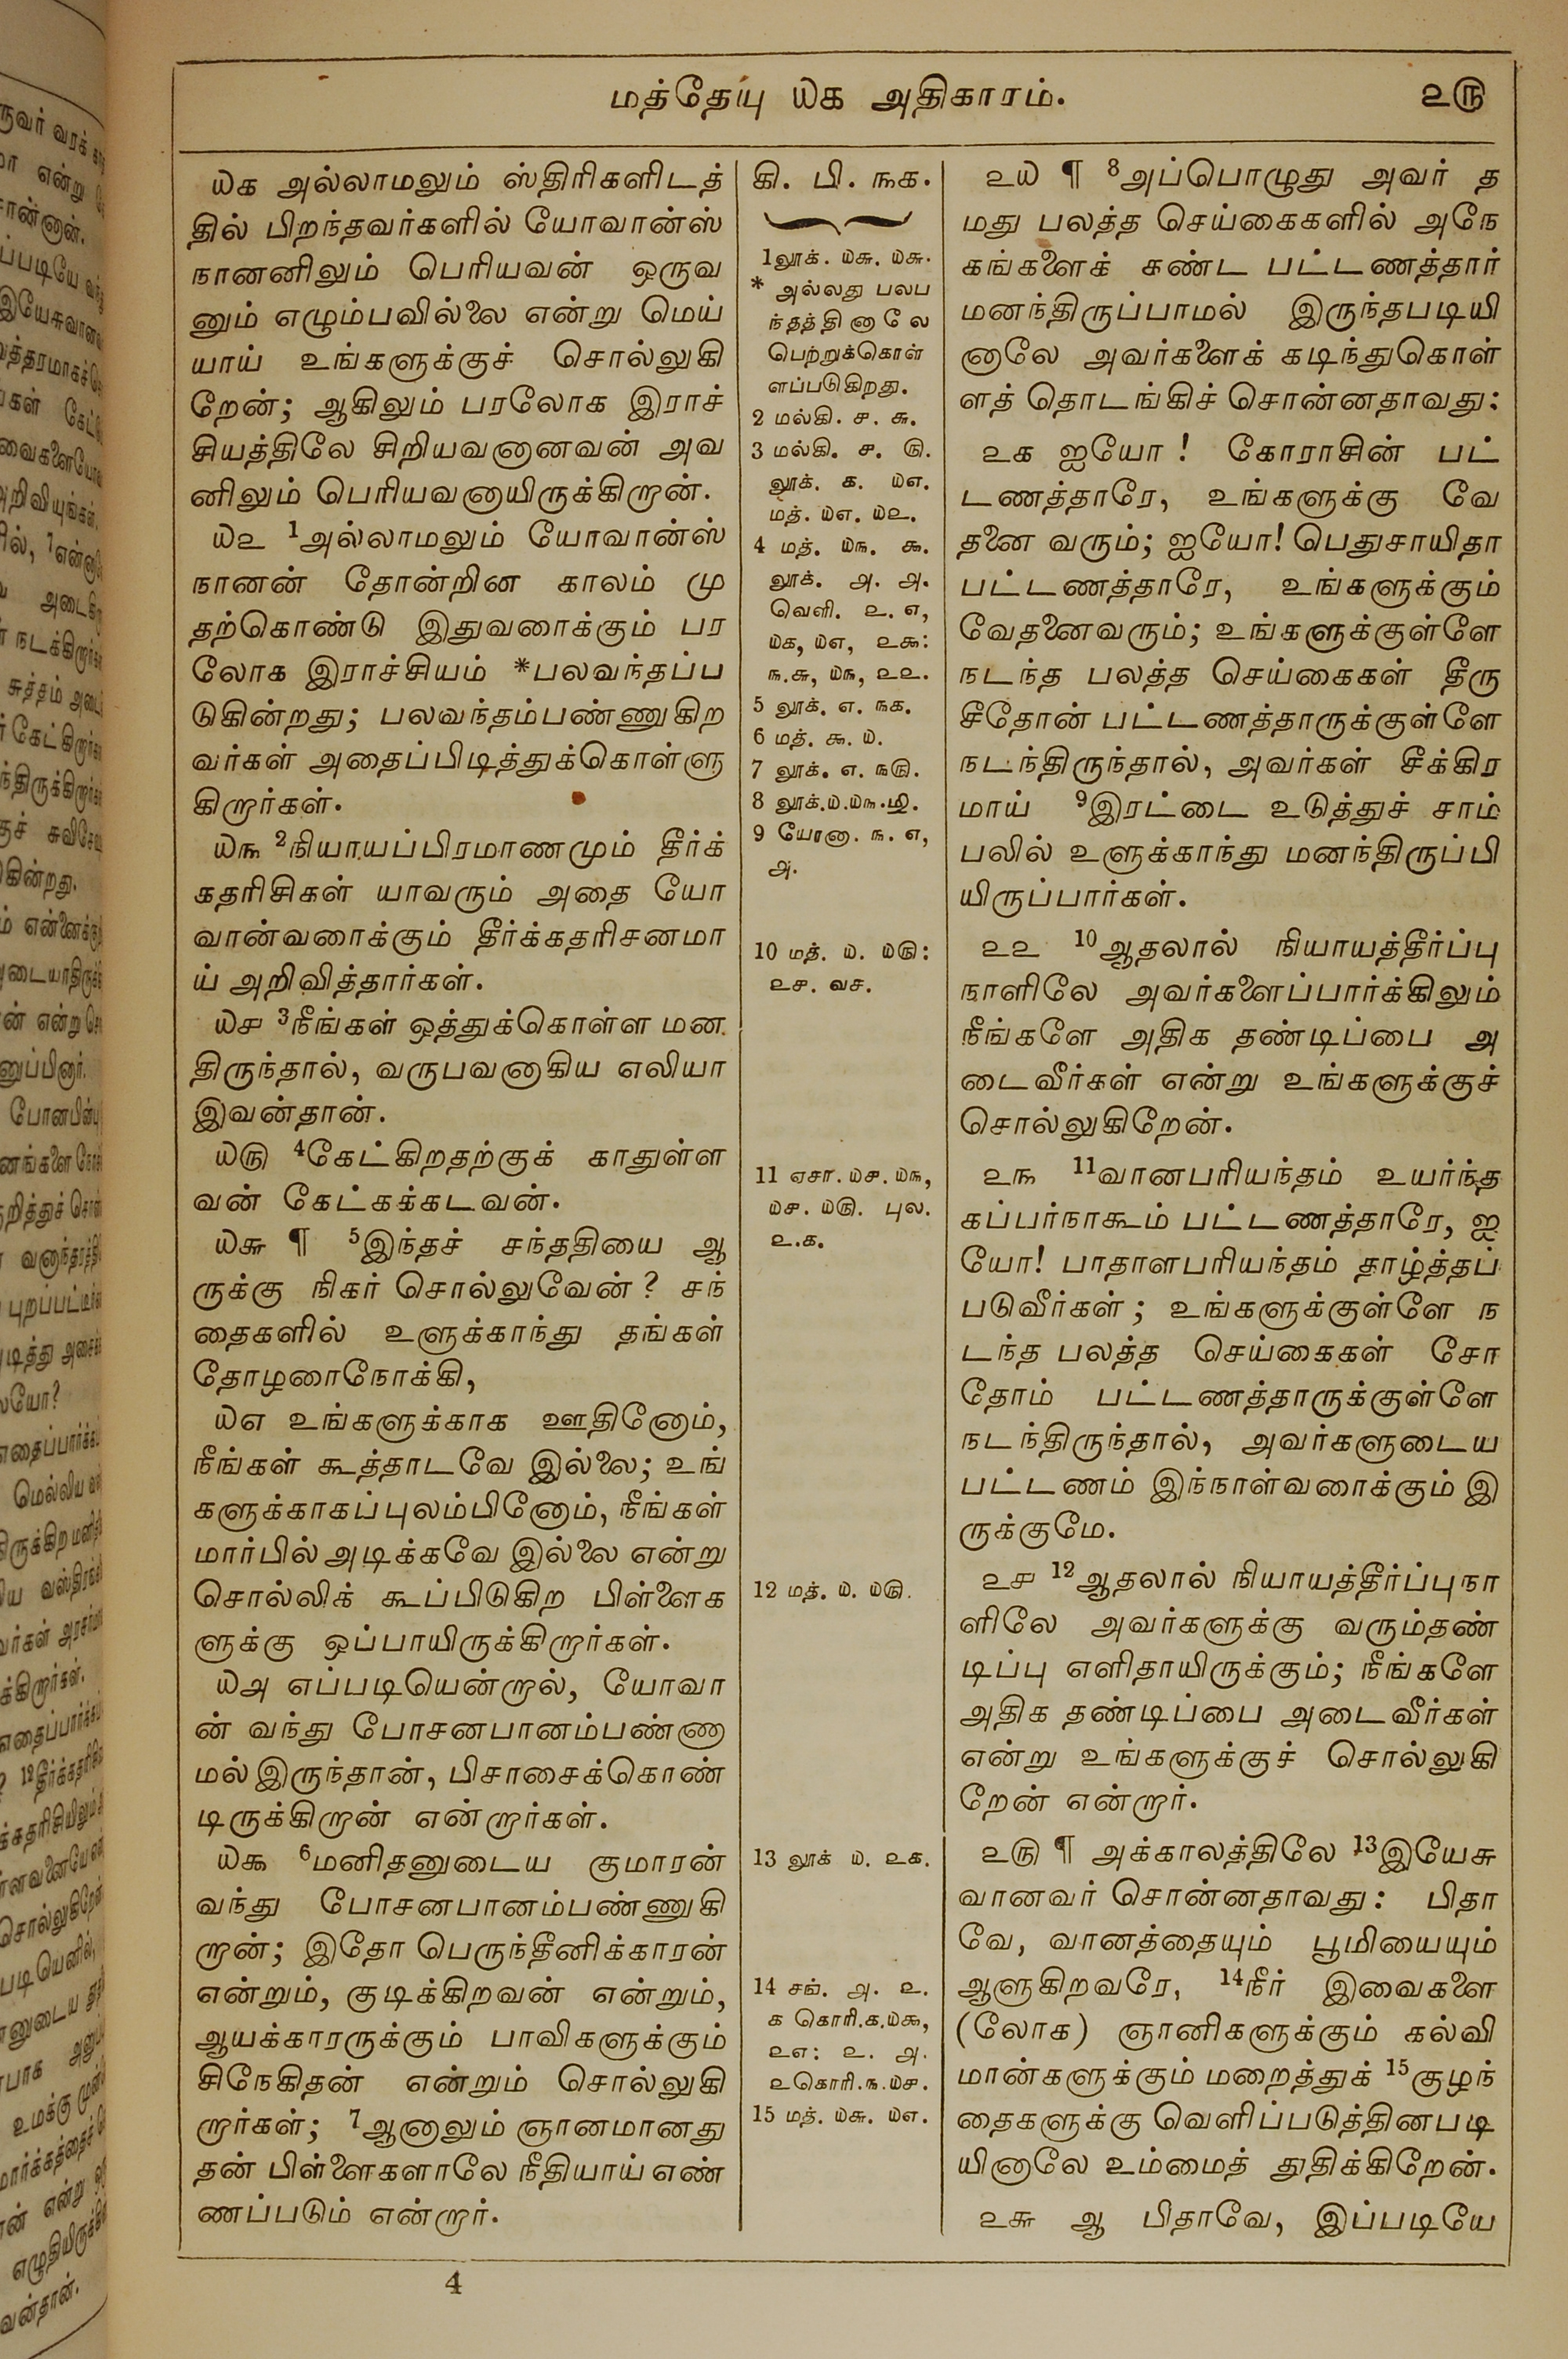 மத்தேயு ௰௧ அதிகாரம்.
௨௫
௰௧ அல்லாமலும் ஸ்திரிகளிடத்
தில் பிறந்தவர்களில் யோவான்ஸ்
நானனிலும் பெரியவன் ஒருவ
னும் எழும்பவில்லை என்று மெய்
யாய் உங்களுக்குச் சொல்லுகி
றேன்; ஆகிலும் பரலோக இராச்
சியத்திலே சிறியவனானவன் அவ
னிலும் பெரியவனாயிருக்கிறான்.
௰௨ 1அல்லாமலும் யோவான்ஸ்
நானன் தோன்றின காலம் மு
தற்கொண்டு இதுவரைக்கும் பர
லோக இராச்சியம் *பலவந்தப்ப
டுகின்றது; பலவந்தம்பண்ணுகிற
வர்கள் அதைப்பிடித்துக்கொள்ளு
கிறார்கள்.
௰௩ 2நியாயப்பிரமாணமும் தீர்க்
கதரிசிகள் யாவரும் அதை யோ
வான்வரைக்கும் தீர்க்கதரிசனமா
ய் அறிவித்தார்கள்.
௰௪ 3நீங்கள் ஒத்துக்கொள்ள மன
திருந்தால், வருபவனாகிய எலியா
இவன்தான்.
௰௫ 4கேட்கிறதற்குக் காதுள்ள
வன் கேட்கக்கடவன்.
௰௬ ¶ 5இந்தச் சந்ததியை ஆ
ருக்கு நிகர் சொல்லுவேன்? சந்
தைகளில் உளுக்காந்து தங்கள்
தோழரைநோக்கி,
௰௭ உங்களுக்காக ஊதினோம்,
நீங்கள் கூத்தாடவே இல்லை; உங்
களுக்காகப்புலம்பினோம், நீங்கள்
மார்பில் அடிக்கவே இல்லை என்று
சொல்லிக் கூப்பிடுகிற பிள்ளைக
ளுக்கு ஒப்பாயிருக்கிறார்கள்.
௰௮ எப்படியென்றால், யோவா
ன் வந்து போசனபானம்பண்ணா
மல் இருந்தான், பிசாசைக்கொண்
டிருக்கிறான் என்றார்கள்.
௰௯ 6மனிதனுடைய குமாரன்
வந்து போசனபானம்பண்ணுகி
றான்; இதோ பெருந்தீனிக்காரன்
என்றும், குடிக்கிறவன் என்றும்,
ஆயக்காரருக்கும் பாவிகளுக்கும்
சிநேகிதன் என்றும் சொல்லுகி
றார்கள்; 7ஆனாலும் ஞானமானது
தன் பிள்ளைகளாலே நீதியாய் எண்
ணப்படும் என்றார்.
கி. பி. ௩௧.
1லூக். ௰௬. ௰௬.
* அல்லது பலப
ந்தத்தினாலே
பெற்றுக்கொள்
ளப்படுகிறது.
2 மல்கி. ௪. ௬.
3 மல்கி. ௪. ௫.
லூக். ௧. ௰௭.
மத். ௰௭. ௰௨.
4 மத். ௰௩. ௯.
லூக். ௮. ௮.
வெளி. ௨. ௭,
௰௧, ௰௭, ௨௯:
௩.௬, ௰௩, ௨௨.
5 லூக். ௭. ௩௧.
6 மத். ௯. ௰.
7 லூக். ௭. ௩௫.
8 லூக்.௰.௰௩.
9 யோனா. ௩. ௭,
௮.
10 மத். ௰. ௰௫:
௨௪. வச.
11 ஏசா. ௰௪. ௰௩,
௰௪. ௰௫. புல.
௨.௧.
12 மத். ௰. ௰௫.
13 லூக் ௰. ௨௧.
14 சங். ௮. ௨.
௧ கொரி.௧.௰௯,
௨௭: ௨. ௮.
௨கொரி.௩.௰௪.
15 மத். ௰௬. ௰௭.
௨௰ ¶ 8அப்பொழுது அவர் த
மது பலத்த செய்கைகளில் அநே
கங்களைக் கண்ட பட்டணத்தார்
மனந்திருப்பாமல் இருந்தபடியி
னாலே அவர்களைக் கடிந்துகொள்
ளத் தொடங்கிச் சொன்னதாவது:
௨௧ ஐயோ! கோராசின் பட்
டணத்தாரே, உங்களுக்கு வே
தனை வரும்; ஐயோ! பெதுசாயிதா
பட்டணத்தாரே, உங்களுக்கும்
வேதனைவரும்; உங்களுக்குள்ளே
நடந்த பலத்த செய்கைகள் தீரு
சீதோன் பட்டணத்தாருக்குள்ளே
நடந்திருந்தால், அவர்கள் சீக்கிர
மாய் 9இரட்டை உடுத்துச் சாம்
பலில் உளுக்காந்து மனந்திருப்பி
யிருப்பார்கள்.
௨௨ 10ஆதலால் நியாயத்தீர்ப்பு
நாளிலே அவர்களைப்பார்க்கிலும்
நீங்களே அதிக தண்டிப்பை அ
டைவீர்கள் என்று உங்களுக்குச்
சொல்லுகிறேன்.
௨௩ 11வானபரியந்தம் உயர்ந்த
கப்பர்நாகூம் பட்டணத்தாரே, ஐ
யோ! பாதாளபரியந்தம் தாழ்த்தப்
படுவீர்கள்; உங்களுக்குள்ளே ந
டந்த பலத்த செய்கைகள் சோ
தோம் பட்டணத்தாருக்குள்ளே
நடந்திருந்தால், அவர்களுடைய
பட்டணம் இந்நாள்வரைக்கும் இ
ருக்குமே.
௨௪ 12ஆதலால் நியாயத்தீர்ப்புநா
ளிலே அவர்களுக்கு வரும்தண்
டிப்பு எளிதாயிருக்கும்; நீங்களே
அதிக தண்டிப்பை அடைவீர்கள்
என்று உங்களுக்குச் சொல்லுகி
றேன் என்றார்.
௨௫ ¶ அக்காலத்திலே 13இயேசு
வானவர் சொன்னதாவது: பிதா
வே, வானத்தையும் பூமியையும்
ஆளுகிறவரே, 14நீர் இவைகளை
(லோக) ஞானிகளுக்கும் கல்வி
மான்களுக்கும் மறைத்துக் 15குழந்
தைகளுக்கு வெளிப்படுத்தினபடி
யினாலே உம்மைத் துதிக்கிறேன்.
௨௬ ஆ பிதாவே, இப்படியே
4